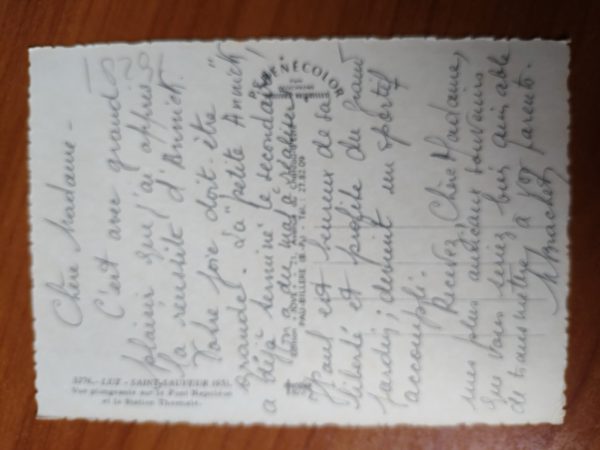 Chère Madame -
C'est avec grand
plaisir que j'ai appris
la réussite d'Annick.
Votre joie doit être
grande. La "petite Annick"
a déjà terminé le secondaire
Paul est heureux de sa
liberté et profite du grand
jardin; devient un sportif
accompli.
Recevez, Chère Madame,
mes plus amicaux souvenirs
que vous seriez bien aimable
de transmettre à vos parents.
PYRÉNÉCOLOR
PAU-BILLÈRE (B.-P.) - Tél. : 27.82.09
LUZ - SAINT-SAUVEUR
Vue plongeante sur le Pont Napoléon
et la Station Thermale.